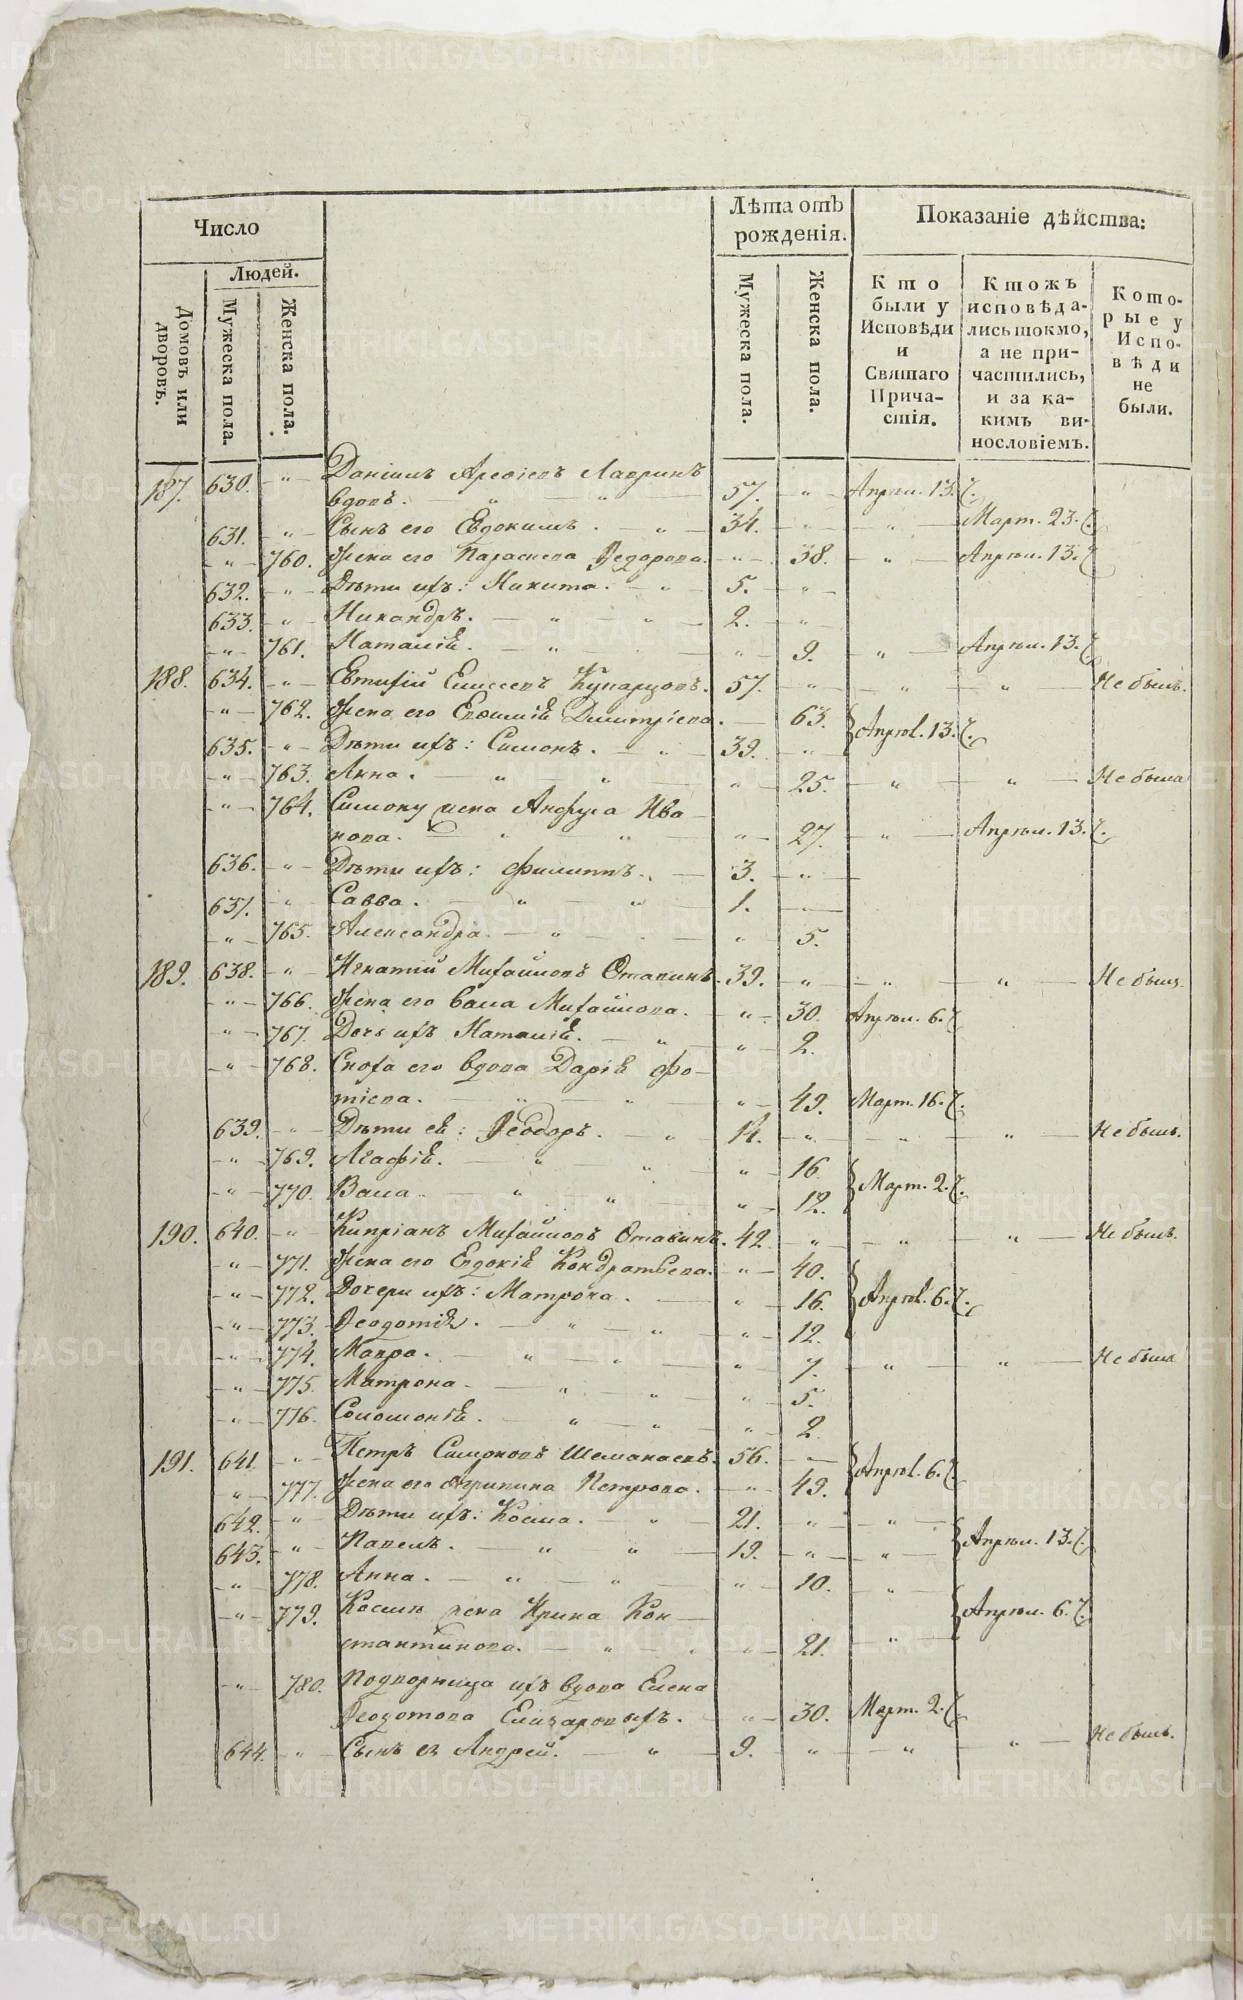 Число
Лѣта отъ рожденія.
Показаніе дѣйства:
Людей.
Домовъ или дворовъ.
Мужеска пола.
Женска пола.
Мужеска пола.
Женска пола.
Кто были у Исповѣди и Святаго Причастія.
Ктожъ исповѣдались токмо, а не причастились, и за какимъ винословіемъ.
Которые у Исповѣди не были.
187. 630. „ Даніилъ Арефіевъ Лавринъ
вдовъ. „ „ 57. „ Апрѣл. 13.
631. „ Сынъ его Евдокимъ. „ 34. „ „ Март. 23.
„ 760. Жена его Параскева Ѳедорова. „ 38. „ Апрѣл. 13.
632. „ Дѣти ихъ: Никита. „ 5. „
633. „ Никандръ. „ „ 2. „
„ 761. Наталія. „ „ 9. „ Апрѣл. 13.
188. 634. „ Евтихій Елисеевъ 57. „ „ „ Не былъ.
„ 762. Жена его Димитріева. 63. Апрѣл. 13.
635. „ Дѣти ихъ: Симонъ. „ 39. „
„ 763. Анна. „ „ „ 25. „ „ Не была
„ 764. Симону жена Ива
нова. „ „ „ 27. „ Апрѣл. 13.
636. „ Дѣти ихъ: Филиппъ. 3. „
637. „ Савва. „ „ 1.
„ 765. Александра. „ „ 5.
189. 638. „ Игнатій Михайловъ 39. „ „ „ Не былъ.
„ 766. Жена его Михайлова. „ 30. Апрѣл. 6.
„ 767. Дочь ихъ Наталія. „ „ 2.
„ 768. Сноха его вдова Дарія Фо
тіева. „ „ „ 49. Март. 16.
639. „ Дѣти ея: Ѳеодоръ. „ 14. „ „ „ Не былъ.
„ 769. Агафія. „ „ „ 16. Март. 2.
„ 770. „ „ „ 12.
190. 640. „ Кипріанъ Михайловъ 42. „ „ „ Не былъ.
„ 771. Жена его Евдокія Кондратьева. „ 40. Апрѣл. 6.
„ 772. Дочери ихъ: Матрона. „ 16.
„ 773. Ѳеодотія. „ „ „ 12.
„ 774. Мавра. „ „ „ 7. „ „ Не была
„ 775. Матрона „ „ „ 5.
„ 776. Соломонія. „ „ „ 2.
191. 641. „ Петръ Симоновъ Шемакаевъ. 56. Апрѣл. 6.
„ 777. Жена его Агрипина Петрова. „ 49.
642. „ Дѣти ихъ: Косма. „ 21. „ „ Апрѣл. 13.
643. „ Павелъ. „ „ 19. „ „
„ 778. Анна. „ „ „ 10. „ Апрѣл. 6.
„ 779. Космы жена Ирина Кон
стантинова. „ „ „ 21. „
„ 780. ихъ вдова Елена
Ѳеодотова Елизаровыхъ. „ 30. Март. 2.
644. „ Сынъ ея Андрей. „ 9. „ „ „ Не былъ.
METRIKI.GASO-URAL.RU